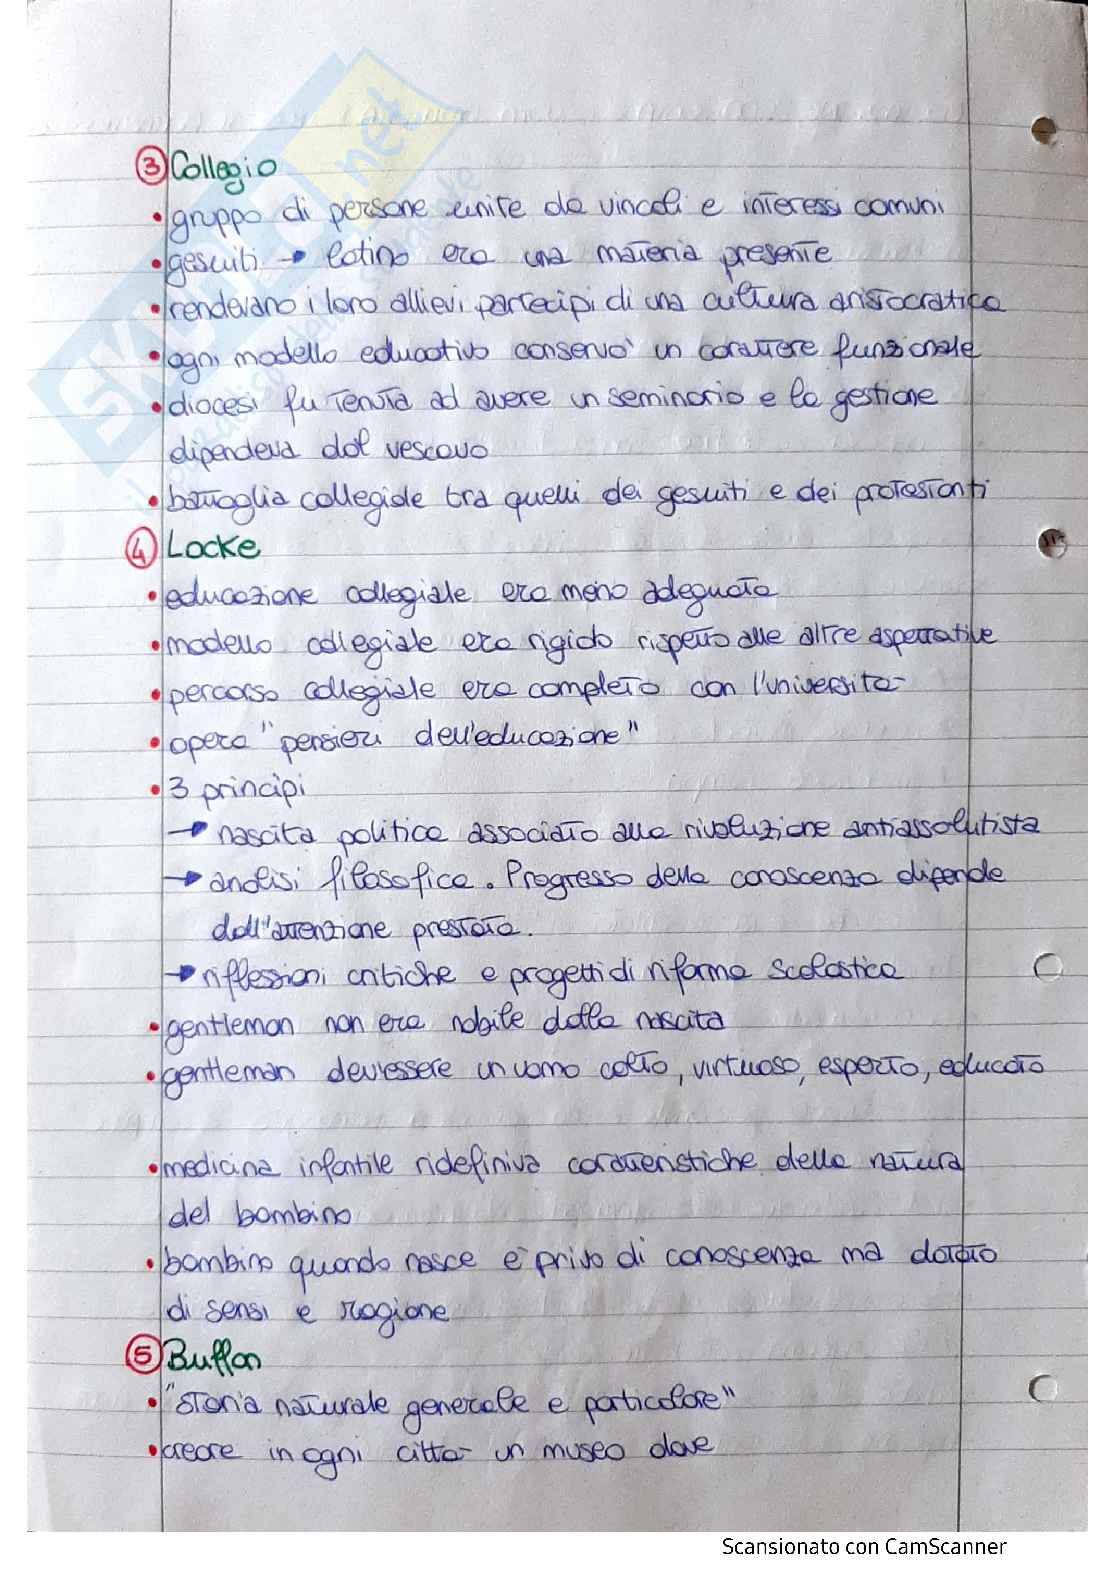 ③ Collegio
• gruppo di persone unite da vincoli e interessi comuni
• gesuiti → latino era una materia presente
• rendevano i loro allievi partecipi di una cultura aristocratica
• ogni modello educativo conservò un carattere funzionale
• diocesi fu tenuta ad avere un seminario e la gestione
dipendeva dal vescovo
• battaglia collegiale tra quelli dei gesuiti e dei protestanti
④ Locke
• educazione collegiale era meno adeguata
• modello collegiale era rigido rispetto alle altre aspettative
• percorso collegiale era completo con l'università
• opera "pensieri dell'educazione"
• 3 principi
→ nascita politica associato alla rivoluzione antiassolutista
→ analisi filosofica. Progresso della conoscenza dipende
dall'attenzione prestata.
→ riflessioni critiche e progetti di riforma scolastica
• gentleman non era nobile dalla nascita
• gentleman dev'essere un uomo colto, virtuoso, esperto, educato
• medicina infantile ridefiniva caratteristiche della natura
del bambino
• bambino quando nasce è privo di conoscenza ma dotato
di sensi e ragione
⑤ Buffon
• "storia naturale generale e particolare"
• creare in ogni città un museo dove
Scansionato con CamScanner